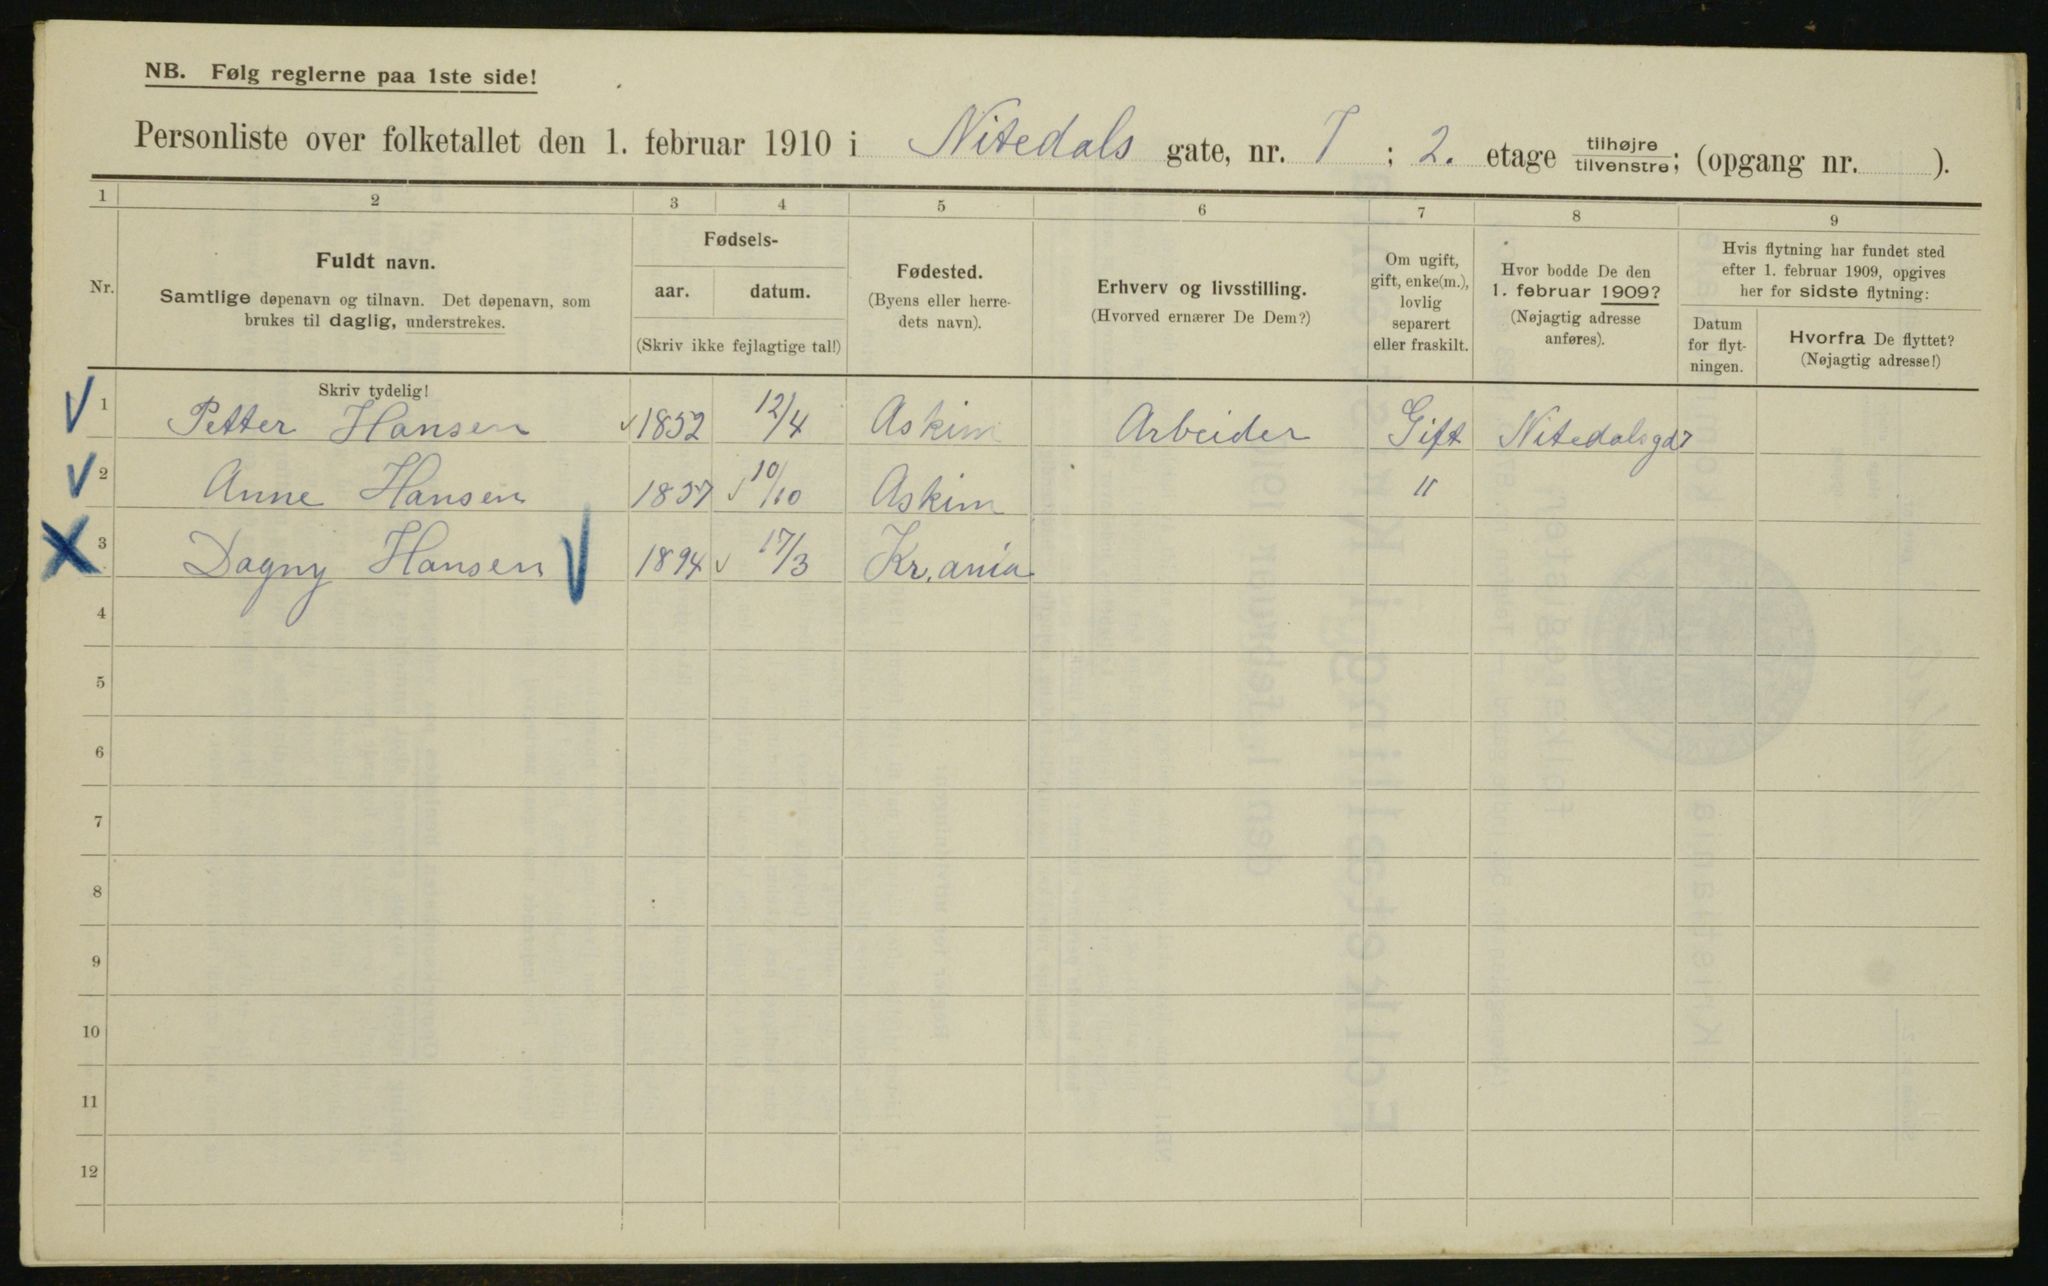 NB. Følg reglerne paa 1ste side!
Personliste over folketallet den 1. februar 1910 i Nitedals gate, nr. 7; 2. etage tilhøjre tilvenstre; (opgang nr. ).
1 2 3 4 5 6 7 8 9
Nr.
Fuldt navn.
Samtlige døpenavn og tilnavn. Det døpenavn, som
brukes til daglig, understrekes.
Fødsels-
aar. datum.
(Skriv ikke fejlagtige tal!)
Fødested.
(Byens eller herre-
dets navn).
Erhverv og livsstilling.
(Hvorved ernærer De Dem?)
Om ugift,
gift, enke(m.),
lovlig
separert
eller fraskilt.
Hvor bodde De den
1. februar 1909?
(Nøjagtig adresse
anføres).
Hvis flytning har fundet sted
efter 1. februar 1909, opgives
her for sidste flytning:
Datum
for flyt-
ningen.
Hvorfra De flyttet?
(Nøjagtig adresse!)
Skriv tydelig!
1 Petter Hansen 1852 12/4 Askim Arbeider Gift Nitedalsgd7
2 Anne Hansen 1857 10/10 Askim "
3 Dagny Hansen 1894 17/3 Kr.ania
4
5
6
7
8
9
10
11
12